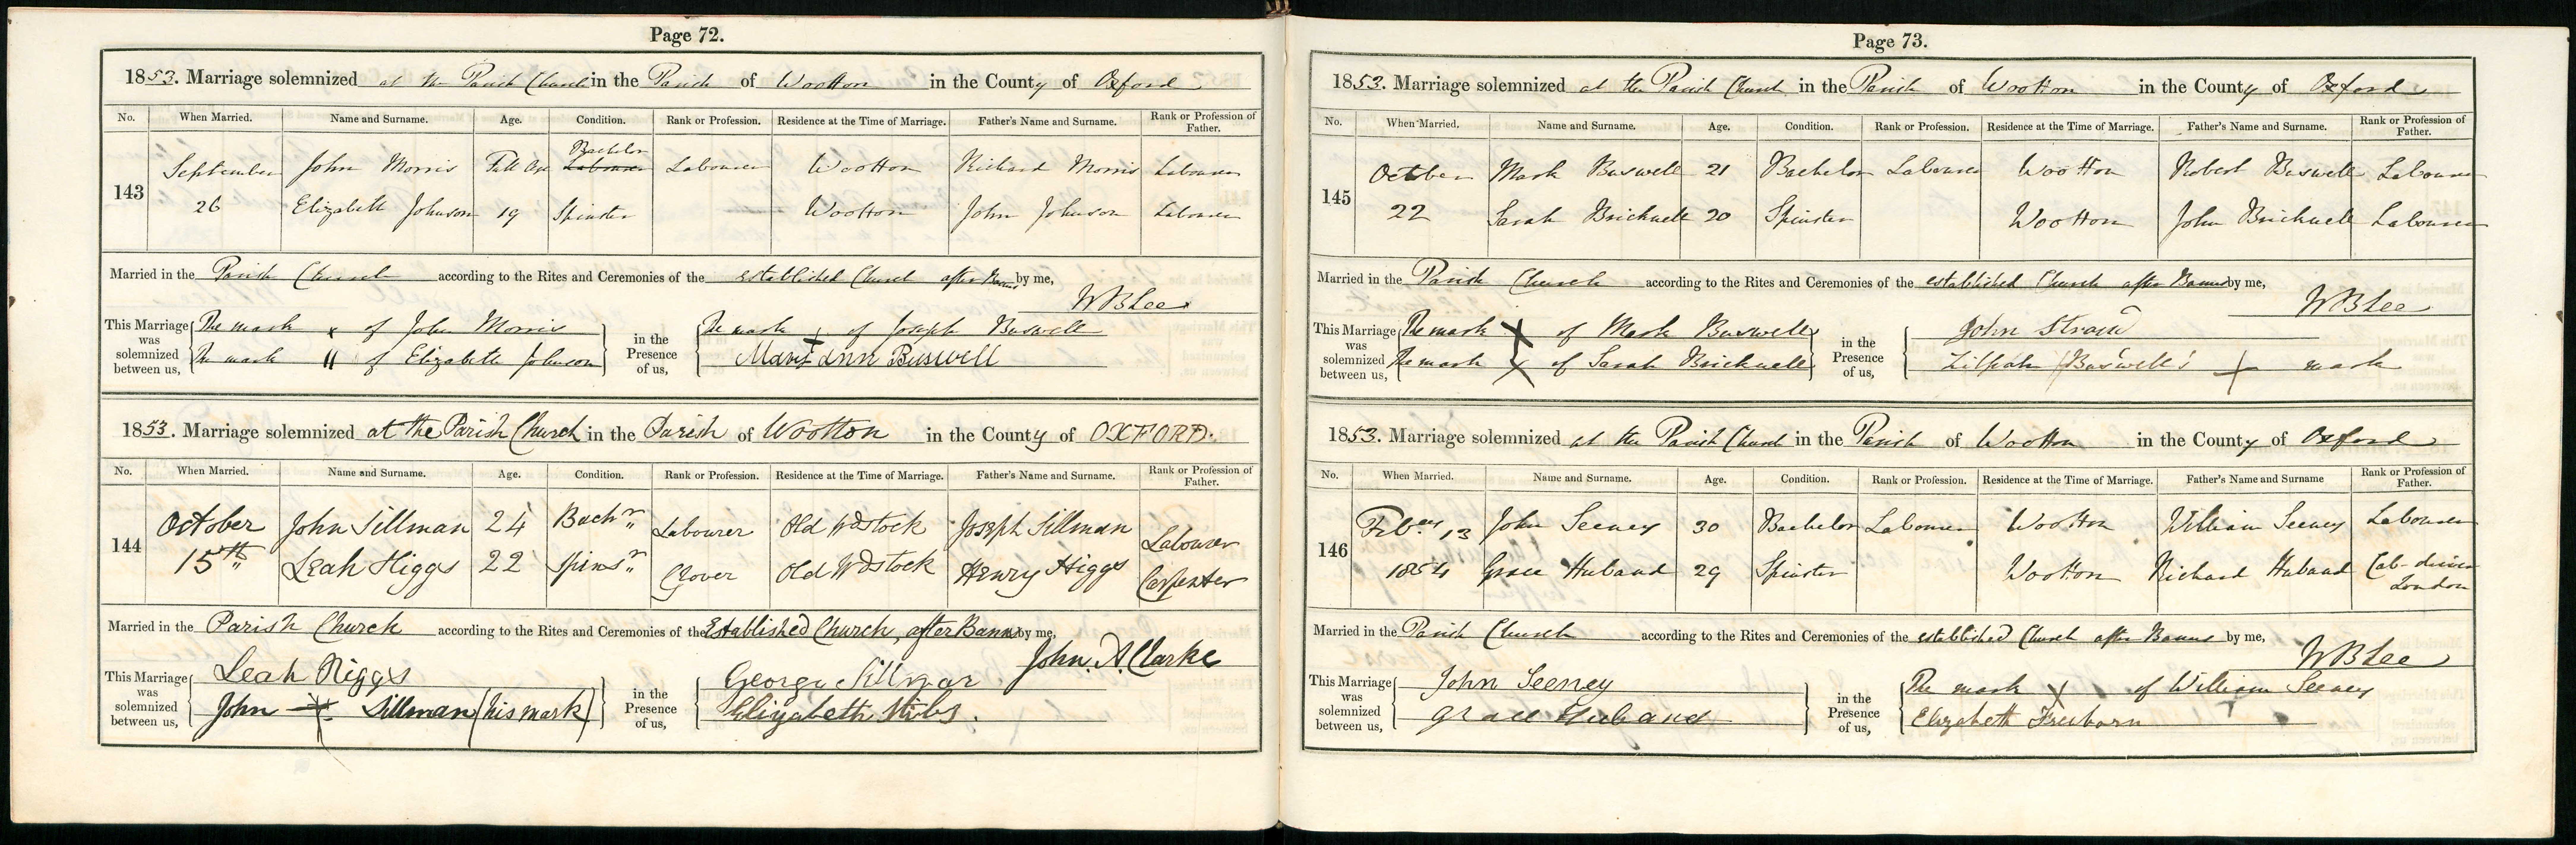 Page 72.
1853. Marriage solemnized at the Parish Church in the Parish of Wootton in the County of Oxford
No. When Married. Name and Surname. Age. Condition. Rank or Profession. Residence at the Time of Marriage. Father's Name and Surname. Rank or Profession of Father.
Bachelor
143 September John Morris Full Age Labourer Labourer Wootton Richard Morris Labourer
26 Elizabeth Johnson 19 Spinster Wootton John Johnson Labourer
Married in the Parish Church according to the Rites and Ceremonies of the established Church after Banns by me,
WBLee
This Marriage was solemnized between us, The mark x of John Morris in the Presence of us, The mark + of Joseph Buswell
The mark || of Elizabeth Johnson Mary Ann Buswell
1853. Marriage solemnized at the Parish Church in the Parish of Wootton in the County of OXFORD.
No. When Married. Name and Surname. Age. Condition. Rank or Profession. Residence at the Time of Marriage. Father's Name and Surname. Rank or Profession of Father.
144 October John Sillman 24 Bachr Labourer Old Wdstock Joseph Sillman Labourer
15th Leah Higgs 22 Spinsr Glover Old Wdstock Henry Higgs Carpenter
Married in the Parish Church according to the Rites and Ceremonies of the Established Church, after Banns by me,
John. A. Clarke
This Marriage was solemnized between us, Leah Higgs in the Presence of us, George Sillman
John + Sillman (his mark) Elizabeth Stibs.
Page 73.
1853. Marriage solemnized at the Parish Church in the Parish of Wootton in the County of Oxford
No. When Married. Name and Surname. Age. Condition. Rank or Profession. Residence at the Time of Marriage. Father's Name and Surname. Rank or Profession of Father.
145 October Mark Buswell 21 Bachelor Labourer Wootton Robert Buswell Labourer
22 Sarah Bricknell 20 Spinster Wootton John Bricknell Labourer
Married in the Parish Church according to the Rites and Ceremonies of the established Church after Banns by me,
WBLee
This Marriage was solemnized between us, The mark X of Mark Buswell in the Presence of us, John
The mark X of Sarah Bricknell Zilpah Buswell's + mark
1853. Marriage solemnized at the Parish Church in the Parish of Wootton in the County of Oxford
No. When Married. Name and Surname. Age. Condition. Rank or Profession. Residence at the Time of Marriage. Father's Name and Surname Rank or Profession of Father.
146 Febry 13 John Seeney 30 Bachelor Labourer Wootton William Seeney Labourer
1854 Grace Huband 29 Spinster Wootton Richard Huband Cab-driver London
Married in the Parish Church according to the Rites and Ceremonies of the established Church after Banns by me,
WBLee
This Marriage was solemnized between us, John Seeney in the Presence of us, The mark X of William Seeney
Grace Huband Elizabeth Freeborn